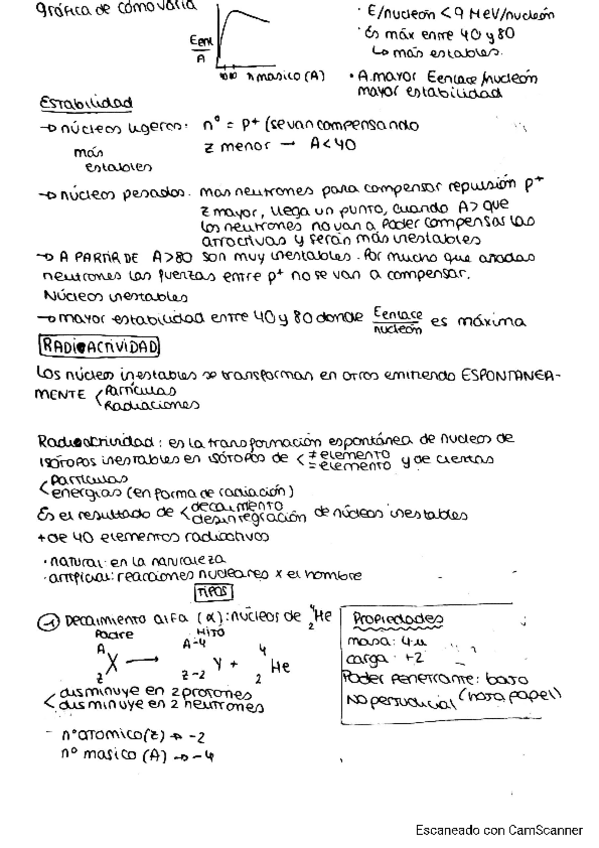 gráfica de cómo varía
Eenl
A
40 80 n masico (A)
· E/nucleón < 9 MeV/nucleón
· Es máx entre 40 y 80
↳ más estables.
· A. mayor Eenlace/nucleón
mayor estabilidad
ESTABILIDAD
→ núcleos ligeros: nº = p+ (se van compensando
más
estables
z menor → A<40
→ núcleos pesados. mas neutrones para compensar repulsión p+
z mayor, llega un punto, cuando A> que
los neutrones no van a poder compensar las
atractivas y serán más inestables
→ A PARTIR DE A>80 son muy inestables. Por mucho que añadas
neutrones las fuerzas entre p+ no se van a compensar.
Núcleos inestables
→ mayor estabilidad entre 40 y 80 donde Eenlace/nucleón es máxima
RADIOACTIVIDAD
Los núcleos inestables se transforman en otros emitiendo ESPONTANEA-
MENTE < Partículas
Radiaciones
Radioactividad: es la transformación espontánea de nucleos de
isótopos inestables en isótopos de < ≠ elemento
= elemento y de ciertas
< Partículas
energías (en forma de radiación)
Es el resultado de < decaimiento
desintegración de núcleos inestables
+ de 40 elementos radiactivos
· natural: en la naturaleza
· artificial: reacciones nucleares x el hombre
TIPOS
1 Decaimiento alfa (α): núcleos de 4 2 He
Padre Hijo
A Z X → A-4 Z-2 Y + 4 2 He
< disminuye en 2 protones
disminuye en 2 neutrones
- nº atomico (z) → -2
nº masico (A) → -4
Propiedades
masa: 4u
carga: +2
Poder penetrante: bajo
No perjudicial (hoja papel)
Escaneado con CamScanner